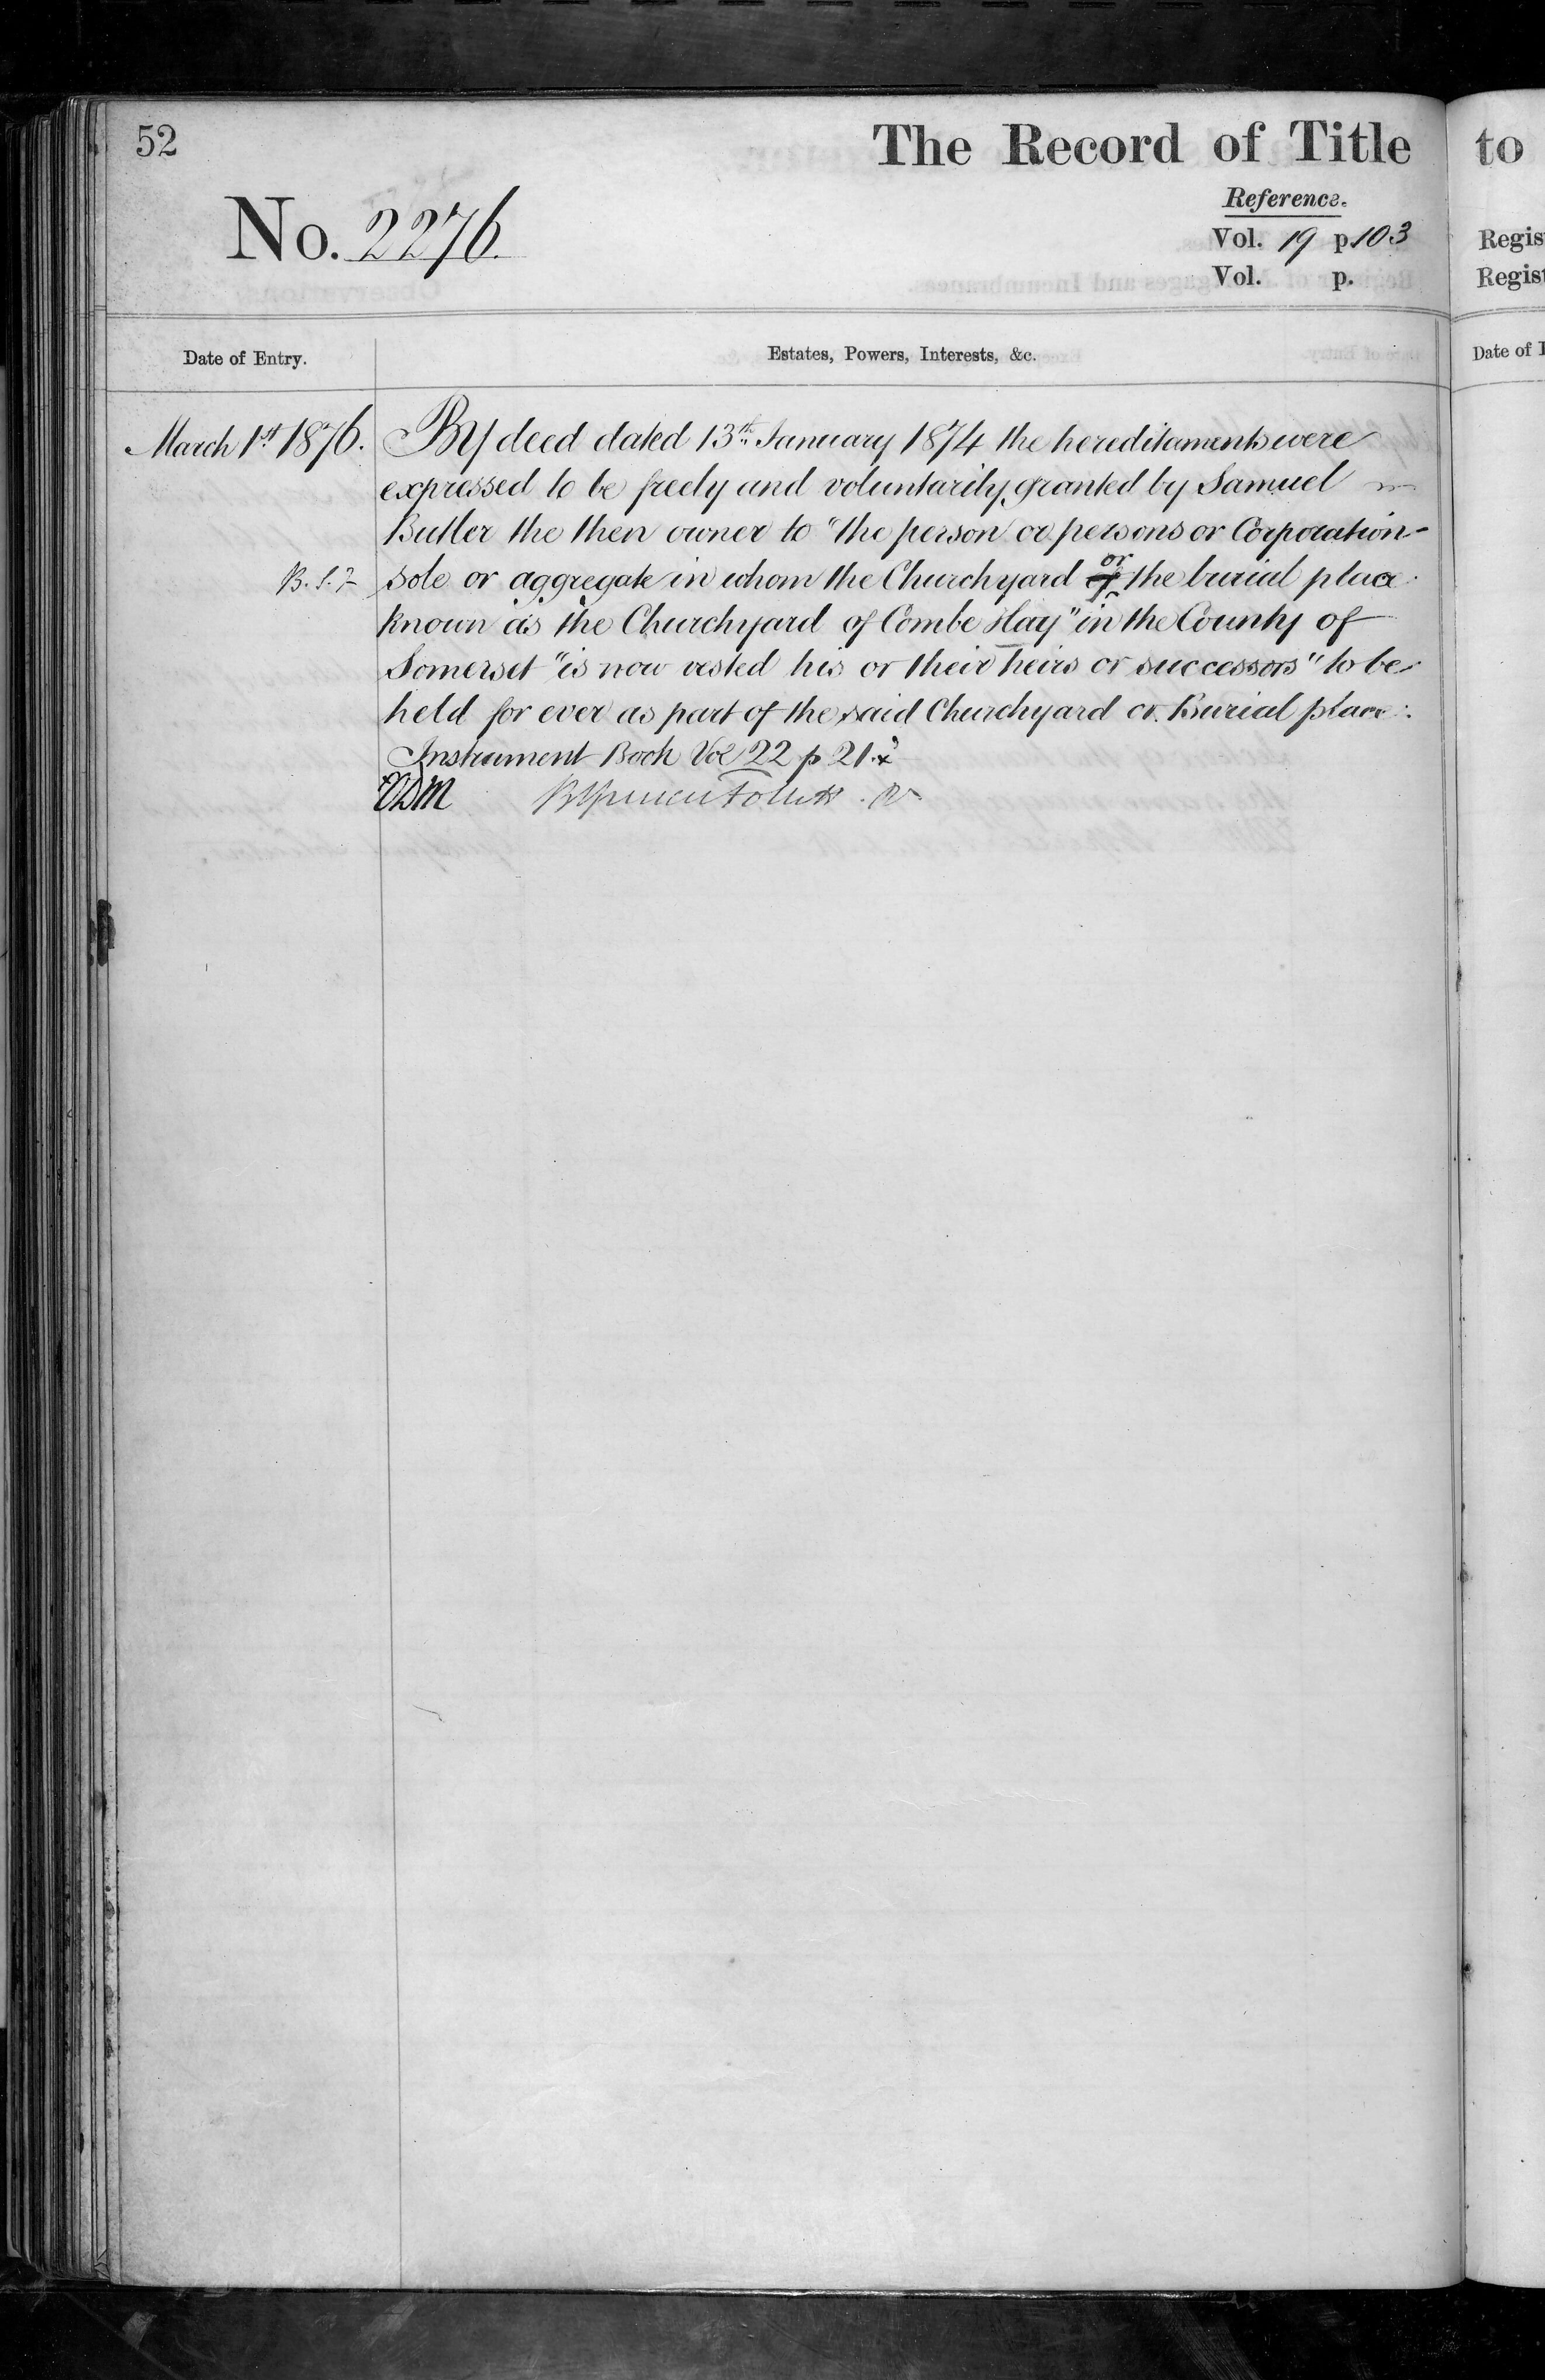 52
The Record of Title
to
Reference.
No. 2276.
Vol. 19 p. 103
Vol. p.
Regis
Regist
Date of Entry.
Estates, Powers, Interests, &c.
Date of
March 1st 1876.
By deed dated 13th January 1874 the hereditaments were
expressed to be freely and voluntarily granted by Samuel
Butler the then owner to "the person or persons or Corporation
B. S. F
sole or aggregate in whom the Churchyard of or the burial place
known as the Churchyard of Combe Hay" in the County of
Somerset "is now vested his or their heirs or successors" to be
held for ever as part of the said Churchyard or Burial place.
Instrument Book Vol 22 p 21.